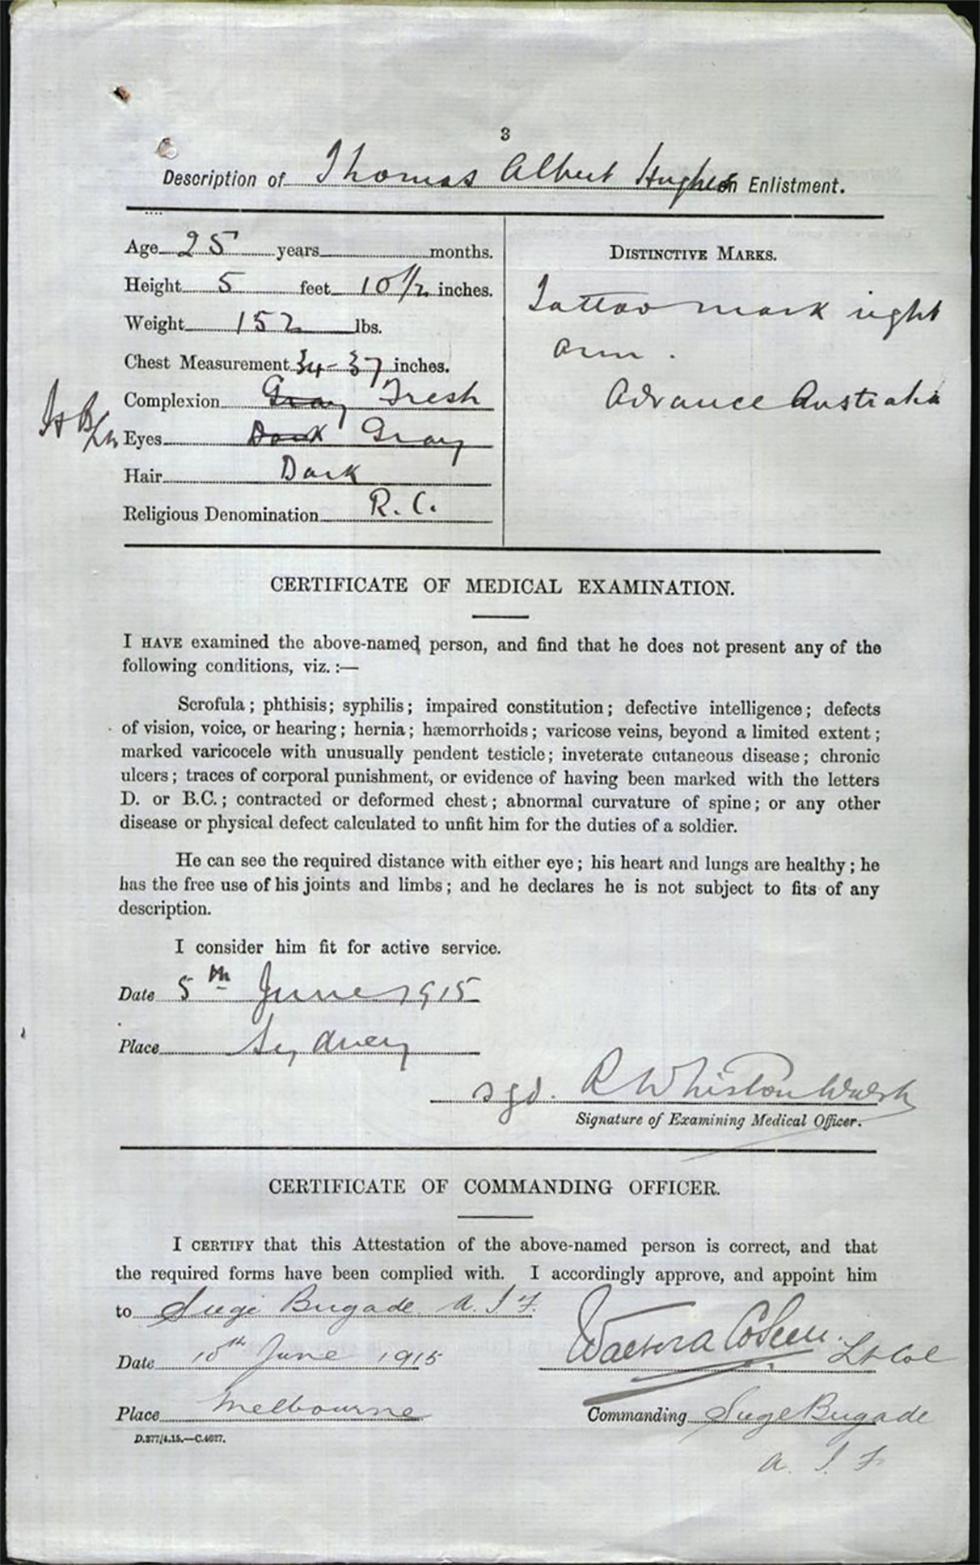 3
Description of Thomas Albert Hughes on Enlistment.
Age 25 years months.
Height 5 feet 10 1/2 inches.
Weight 152 lbs.
Chest Measurement 34-37 inches.
Complexion Gray Fresh
Eyes Dark Gray
Hair Dark
Religious Denomination R. C.
DISTINCTIVE MARKS.
Tattoo mark right
arm.
Advance Australia
CERTIFICATE OF MEDICAL EXAMINATION.
I HAVE examined the above-named person, and find that he does not present any of the
following conditions, viz. :—
Scrofula ; phthisis ; syphilis ; impaired constitution ; defective intelligence ; defects
of vision, voice, or hearing ; hernia ; hæmorrhoids ; varicose veins, beyond a limited extent ;
marked varicocele with unusually pendent testicle ; inveterate cutaneous disease ; chronic
ulcers ; traces of corporal punishment, or evidence of having been marked with the letters
D. or B.C. ; contracted or deformed chest ; abnormal curvature of spine ; or any other
disease or physical defect calculated to unfit him for the duties of a soldier.
He can see the required distance with either eye ; his heart and lungs are healthy ; he
has the free use of his joints and limbs ; and he declares he is not subject to fits of any
description.
I consider him fit for active service.
Date 5th June 1915
Place Sydney
sgd. R Whiston Walsh
Signature of Examining Medical Officer.
CERTIFICATE OF COMMANDING OFFICER.
I CERTIFY that this Attestation of the above-named person is correct, and that
the required forms have been complied with. I accordingly approve, and appoint him
to Siege Brigade A. I F.
Date 10th June 1915
Lt Col
Place Melbourne
Commanding Siege Brigade
A. I F
D.377/4.15.—C.4627.